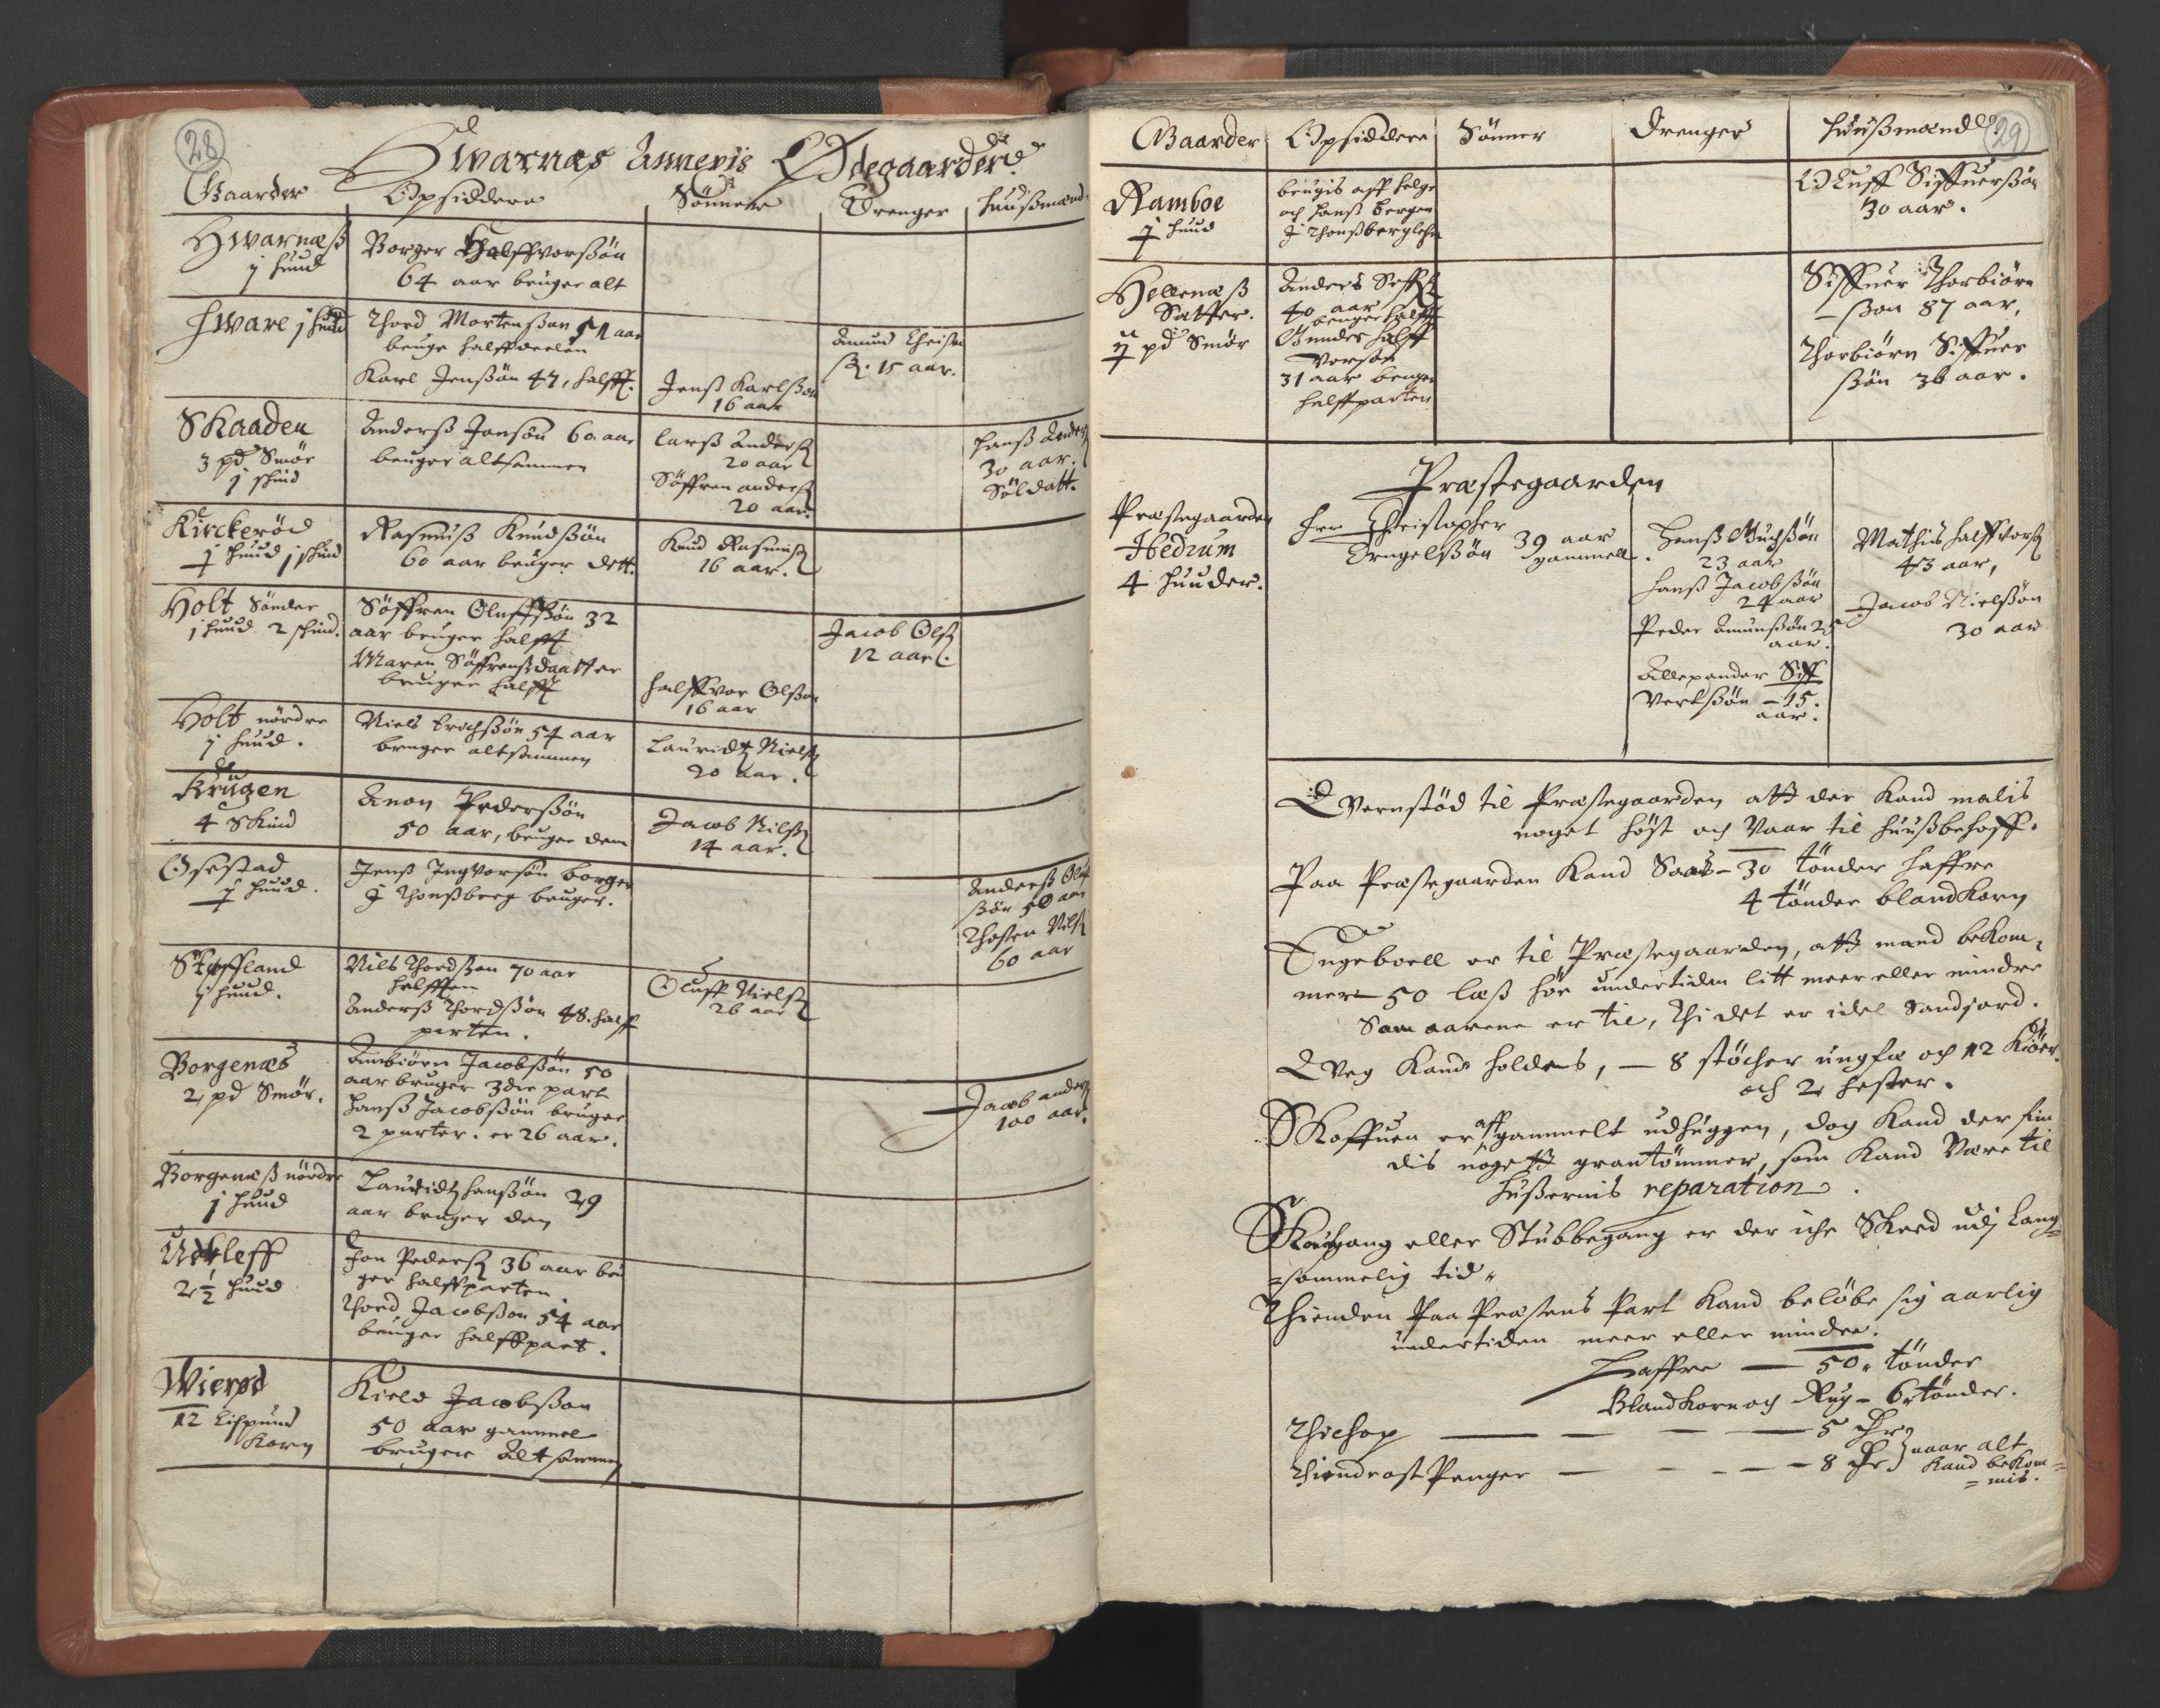 28
Hwarnæs Annexis Ødegaarder
Gaarder Opsiddere Sønner Drenger Huußmænd
Hwarnæß
j huud
Borger Halffvorßøn
64 aar bruger alt
Hware j huud
Thord Mortenßøn 51 aar
bruger halffdeelen
Amund Christe
ß. 15 aar.
Karl Jenßøn 47, halfft.
Jenß Karlßøn
16 aar
Skaaden
3 pd Smør
j skind
Anderß Jonsøn 60 aar
bruger altsammen
Larß Anderß
20 aar
Søffren anderß
20 aar.
Hanß Anderß
30 aar.
Soldatt.
Kirckerød
½ huud j skind
Rasmuß Knudßøn
60 aar bruger dett.
Knud Rasmusß
16 aar.
Holt Sønder
j huud 2 skind.
Søffren Oluffßøn 32
aar bruger halfft
Maren Søffrensdaatter
bruger halfft
Halffvor Olßøn
16 aar
Jacob Olß
12 aar.
Holt nørdre
j huud.
Niels Erichßøn 54 aar
bruger altsammen
Lauridtz Nielß
20 aar.
Krugen
4 Skind
Anon Pederßøn
50 aar, bruger dem
Jacob Nilß
14 aar.
Osestad
½ huud.
Jenß Ingvorsøn borger
J Thonßberg bruger.
Anderß Oluf
ßøn 50 aar
Thosten Nilß
60 aar
Skoffland
j huud.
Nils Thordßøn 70 aar
halfften
Anderß Thordßøn 48. half
parten.
Oluff Nielß
26 aar
Borgenæs
2 pd Smør.
Anbiørn Jacobßøn 50
aar bruger 3die part
Hanß Jacobßøn bruger
2 parter. er 26 aar.
Jacob anderß
100 aar.
Borgenæß nørdre
j huud
Lauridtz Hanßøn 29
aar bruger den
Utkleff
2½ huud
Jon Pederß 36 aar bru
ger halffparten.
Thord Jacobßøn 54 aar
bruger halffpart.
Wierød
12 Lispund
Korn
Kield Jacobßøn
50 aar gammel
bruger Altsammen
29
Gaarder Opsiddere Sønner Drenger Huußmænd
Ramboe
½ huud
brugis aff Helge
och Hanß Bergen
J Thonßberglehn
Oluff Siffuerßøn
30 aar.
Hellenæß
Satter.
½ pd Smør
Anders Seffß
40 aar
bruger halfft
Gunder halff
Vorsøn
31 aar bruger
halffparten
Siffuer Thorbiørn
– ßøn 87 aar,
Thorbiørn Siffuer
ßøn 36 aar.
Præstegaarden
Præstegaarden
Hedrum
4 Huuder.
Herr Christopher
Engelßøn 39 aar
gammell.
Hanß Muchßøn
23 aar
Hanß Jacobßøn
24 aar
Peder Amunßøn 25
aar.
Allexander Siff
Vertßøn – 15.
aar.
Mathis Halffvorß
43 aar,
Jacob Nielßøn
30 aar
Qvernstød til Præstegaarden att der Kand malis
noget Høst och Vaar til Huußbehoff.
Paa Præstegaarden Kand Saais – 30 tønder Haffre
4 tønder blandkorn
Engeboell er til Præstegaarden, att mand bekom,
mer – 50 læß Høe undertiden litt meer eller mindre
Som aarene er til, thi det er idel Sandjord.
Qveg Kand holdes, – 8 støcher ungfæ och 12 Kiøer.
och 2 hester.
Skoffuen er aff gammelt udhuggen, dog Kand der fin
dis nogett grantømmer, som Kand Være til
Hußernis reparation.
Skougang eller Stubbegang er der iche Skeed udj Lang=
=sommelig tid.
Thienden Paa Præstens Part Kand beløbe sig aarlig
undertiden meer eller mindre.
Haffre — 50. tønder
Blandkorn och Rug – 6 tønder.
— — — — 5 Dr.
Thiendeost Penger — – – – — 8 Dr. naar alt
Kand bekom=
=mis.